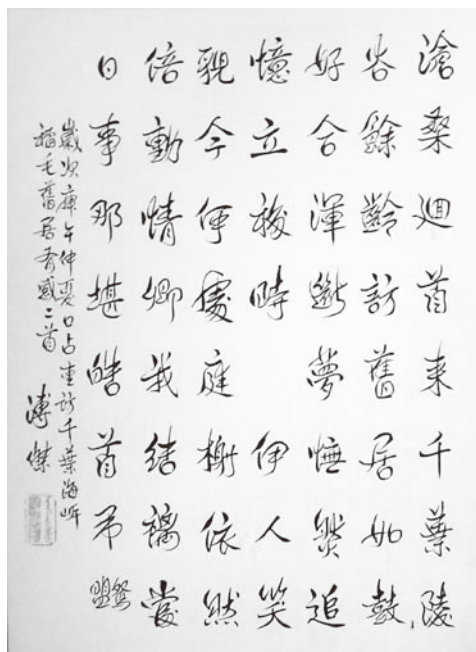 滄桑迴首来千葉陵
谷餘齡訪舊居如鼓
好合渾斷夢然追
憶立移時伊人笑
貌今何處庭榭依然
倍動情卿我結褵當
日事那堪皓首吊鴛盟
歲次庚午仲夏口占重訪千葉海岸
稻毛舊居有感二首 溥傑